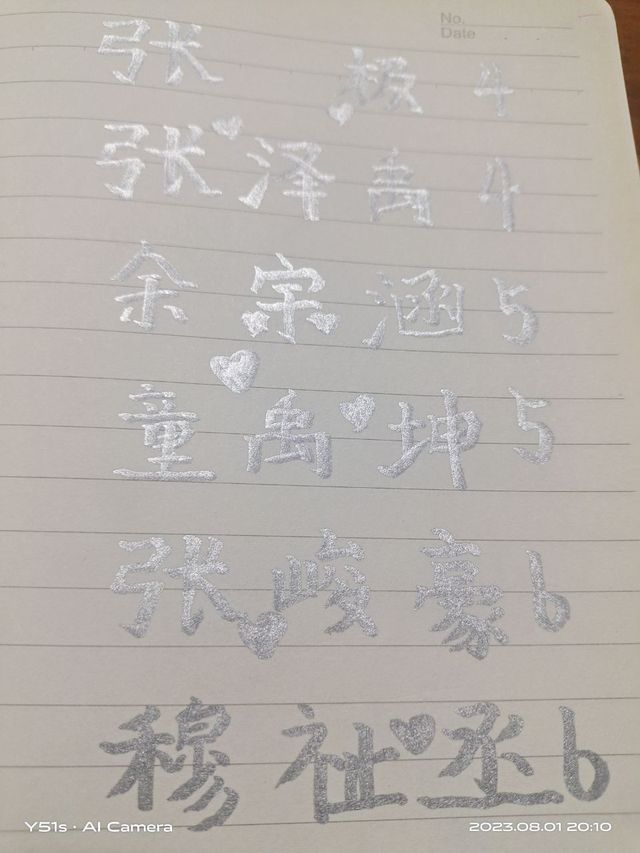 No.
Date
张 极 4
张泽禹 4
余宗涵 5
童禹坤 5
张峻豪 6
穆祉丞 6
Y51s · AI Camera 2023.08.01 20:10